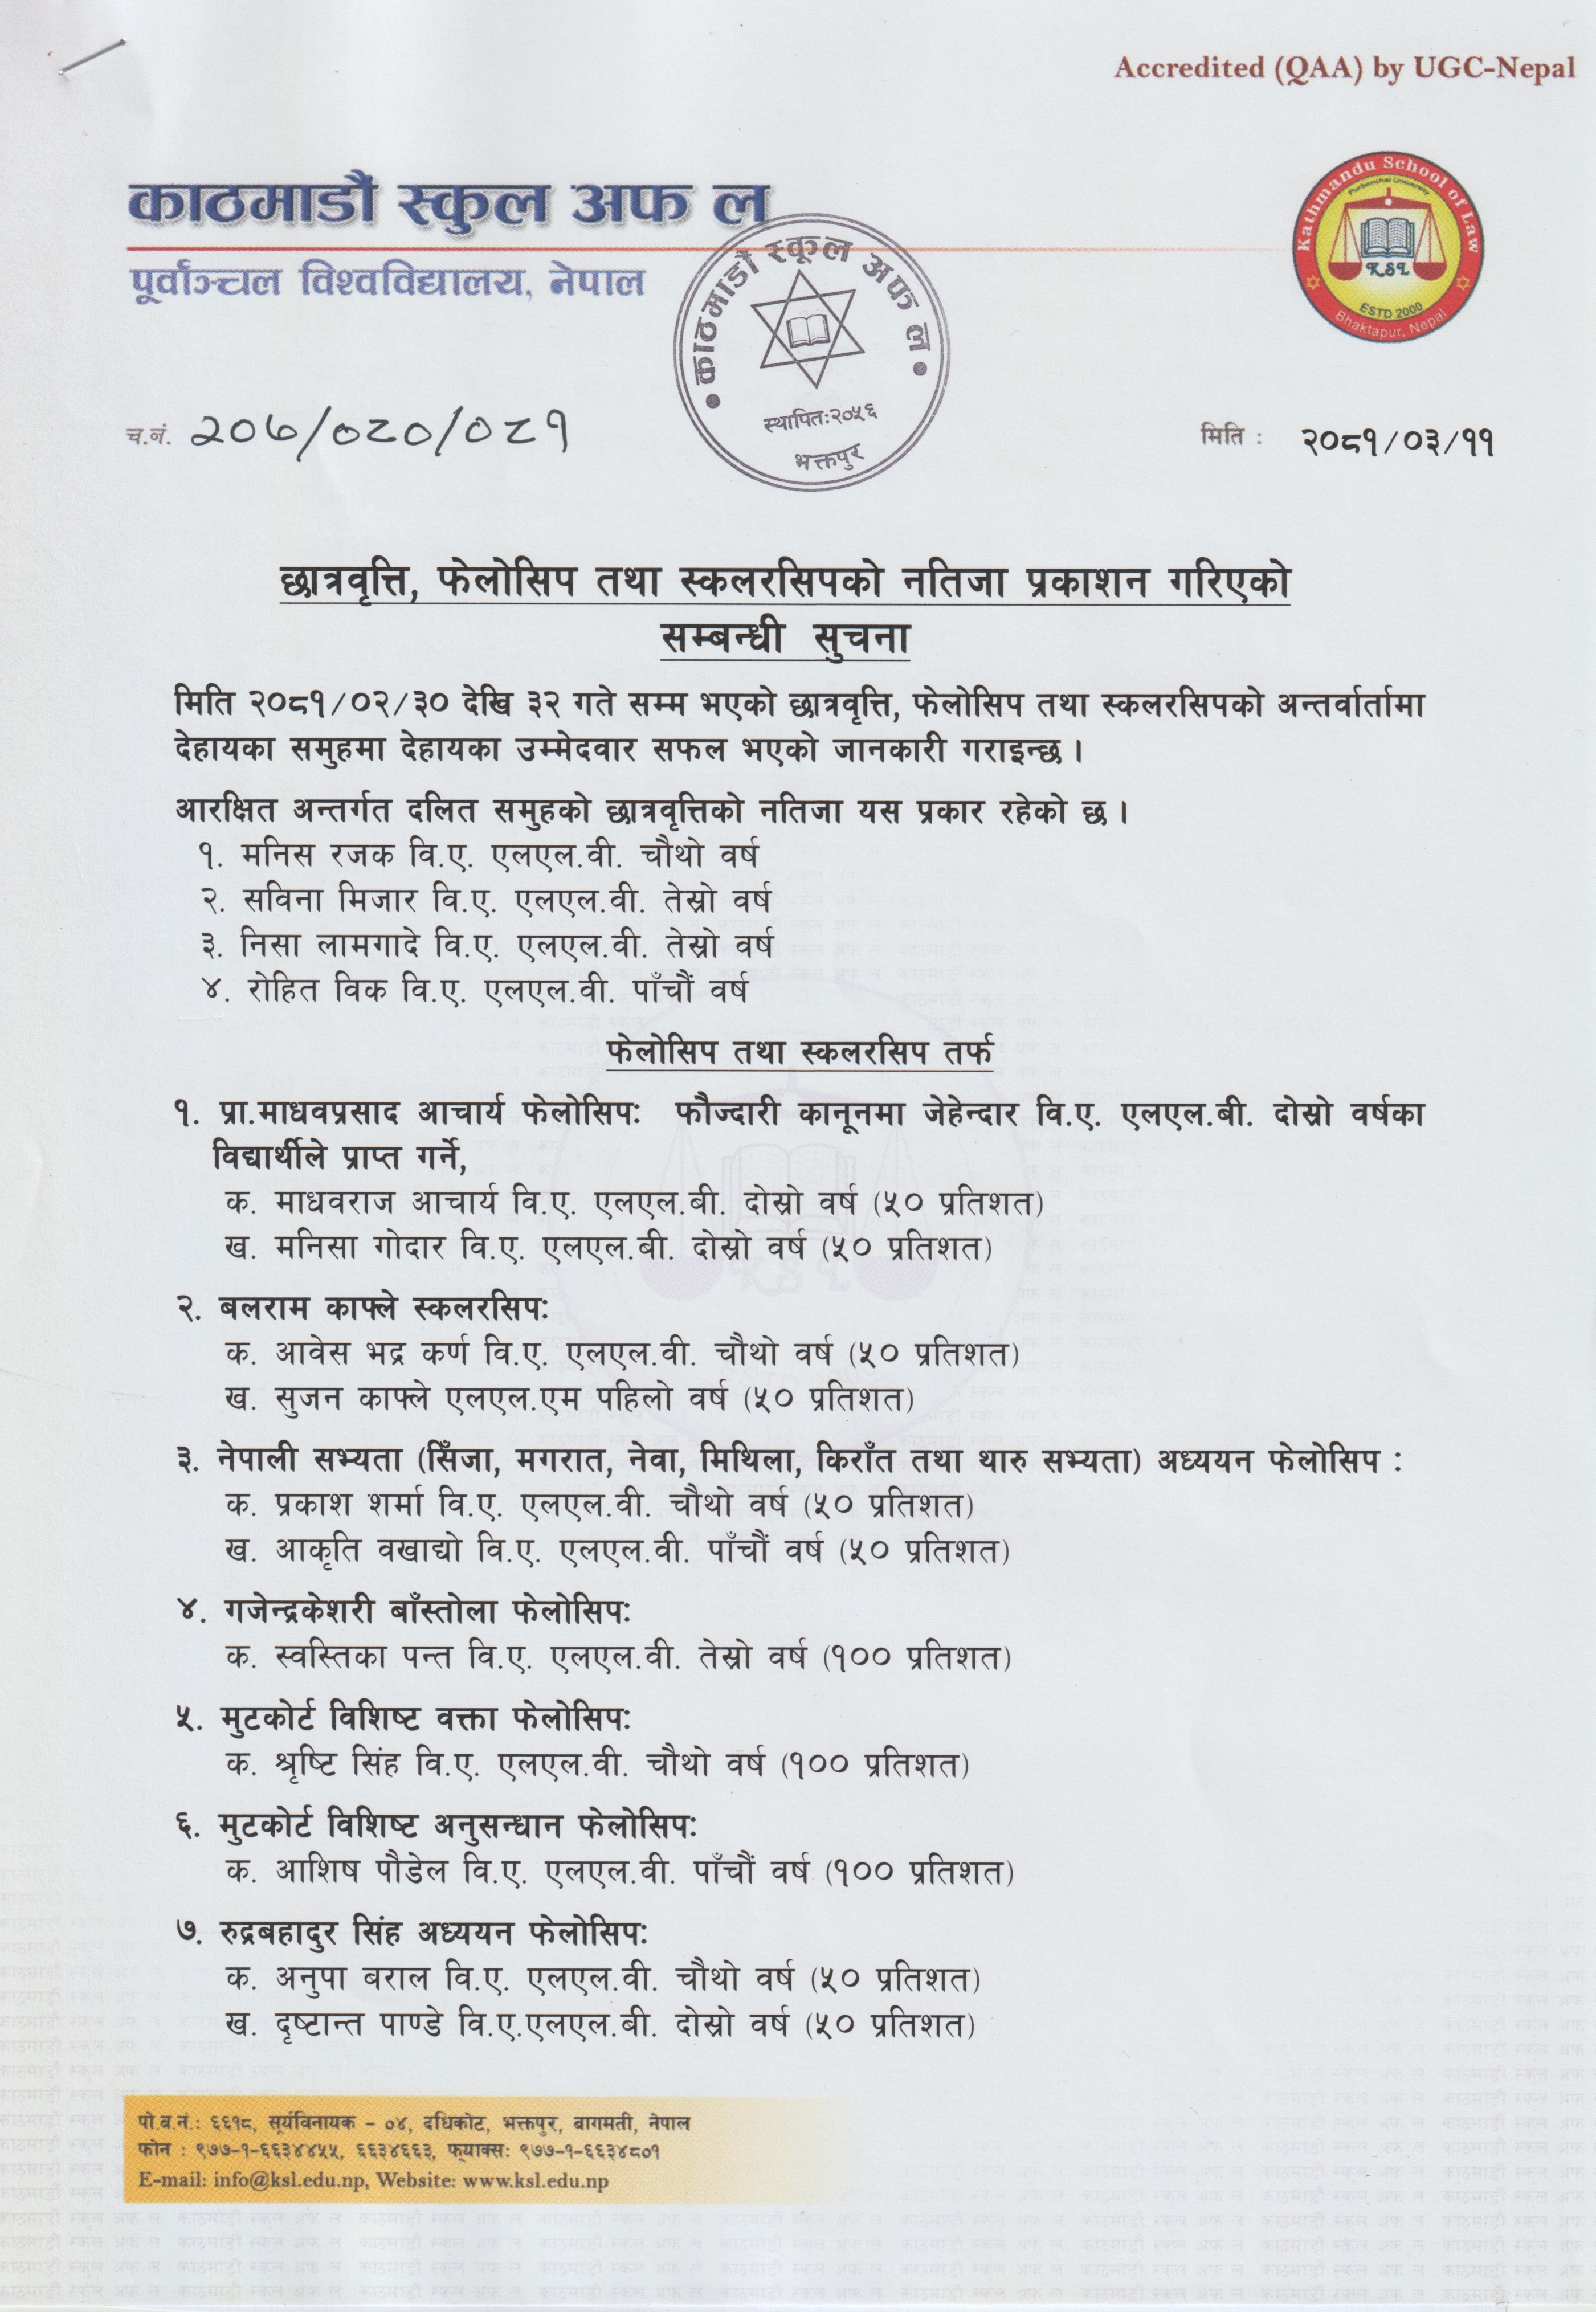 Accredited (QAA) by UGC-Nepal
काठमाडौं स्कुल अफ ल
पूर्वाञ्चल विश्वविद्यालय, नेपाल
Kathmandu School of Law
Purbanchal University
KSL
ESTD 2000
Bhaktapur, Nepal
काठमाडौं स्कूल अफ ल
स्थापित:२०५६
भक्तपुर
च.नं. २०७/०८०/०८१
मिति : २०८१/०३/११
छात्रवृत्ति, फेलोसिप तथा स्कलरसिपको नतिजा प्रकाशन गरिएको
सम्बन्धी सुचना
मिति २०८१/०२/३० देखि ३२ गते सम्म भएको छात्रवृत्ति, फेलोसिप तथा स्कलरसिपको अन्तर्वार्तामा
देहायका समुहमा देहायका उम्मेदवार सफल भएको जानकारी गराइन्छ ।
आरक्षित अन्तर्गत दलित समुहको छात्रवृत्तिको नतिजा यस प्रकार रहेको छ ।
१. मनिस रजक वि.ए. एलएल.वी. चौथो वर्ष
२. सविना मिजार वि.ए. एलएल.वी. तेस्रो वर्ष
३. निसा लामगादे वि.ए. एलएल.वी. तेस्रो वर्ष
४. रोहित विक वि.ए. एलएल.वी. पाँचौं वर्ष
फेलोसिप तथा स्कलरसिप तर्फ
१. प्रा.माधवप्रसाद आचार्य फेलोसिपः फौज्दारी कानूनमा जेहेन्दार वि.ए. एलएल.बी. दोस्रो वर्षका
विद्यार्थीले प्राप्त गर्ने,
क. माधवराज आचार्य वि.ए. एलएल.बी. दोस्रो वर्ष (५० प्रतिशत)
ख. मनिसा गोदार वि.ए. एलएल.बी. दोस्रो वर्ष (५० प्रतिशत)
२. बलराम काफ्ले स्कलरसिपः
क. आवेस भद्र कर्ण वि.ए. एलएल.वी. चौथो वर्ष (५० प्रतिशत)
ख. सुजन काफ्ले एलएल.एम पहिलो वर्ष (५० प्रतिशत)
३. नेपाली सभ्यता (सिँजा, मगरात, नेवा, मिथिला, किराँत तथा थारु सभ्यता) अध्ययन फेलोसिप :
क. प्रकाश शर्मा वि.ए. एलएल.वी. चौथो वर्ष (५० प्रतिशत)
ख. आकृति वखाद्यो वि.ए. एलएल.वी. पाँचौं वर्ष (५० प्रतिशत)
४. गजेन्द्रकेशरी बाँस्तोला फेलोसिपः
क. स्वस्तिका पन्त वि.ए. एलएल.वी. तेस्रो वर्ष (१०० प्रतिशत)
५. मुटकोर्ट विशिष्ट वक्ता फेलोसिपः
क. श्रृष्टि सिंह वि.ए. एलएल.वी. चौथो वर्ष (१०० प्रतिशत)
६. मुटकोर्ट विशिष्ट अनुसन्धान फेलोसिपः
क. आशिष पौडेल वि.ए. एलएल.वी. पाँचौं वर्ष (१०० प्रतिशत)
७. रुद्रबहादुर सिंह अध्ययन फेलोसिपः
क. अनुपा बराल वि.ए. एलएल.वी. चौथो वर्ष (५० प्रतिशत)
ख. दृष्टान्त पाण्डे वि.ए.एलएल.बी. दोस्रो वर्ष (५० प्रतिशत)
पो.ब.नं.: ६६१८, सूर्यविनायक - ०४, दधिकोट, भक्तपुर, बागमती, नेपाल
फोन : ९७७-१-६६३४४५५, ६६३४६६३, फ्याक्सः ९७७-१-६६३४८०१
E-mail: info@ksl.edu.np, Website: www.ksl.edu.np